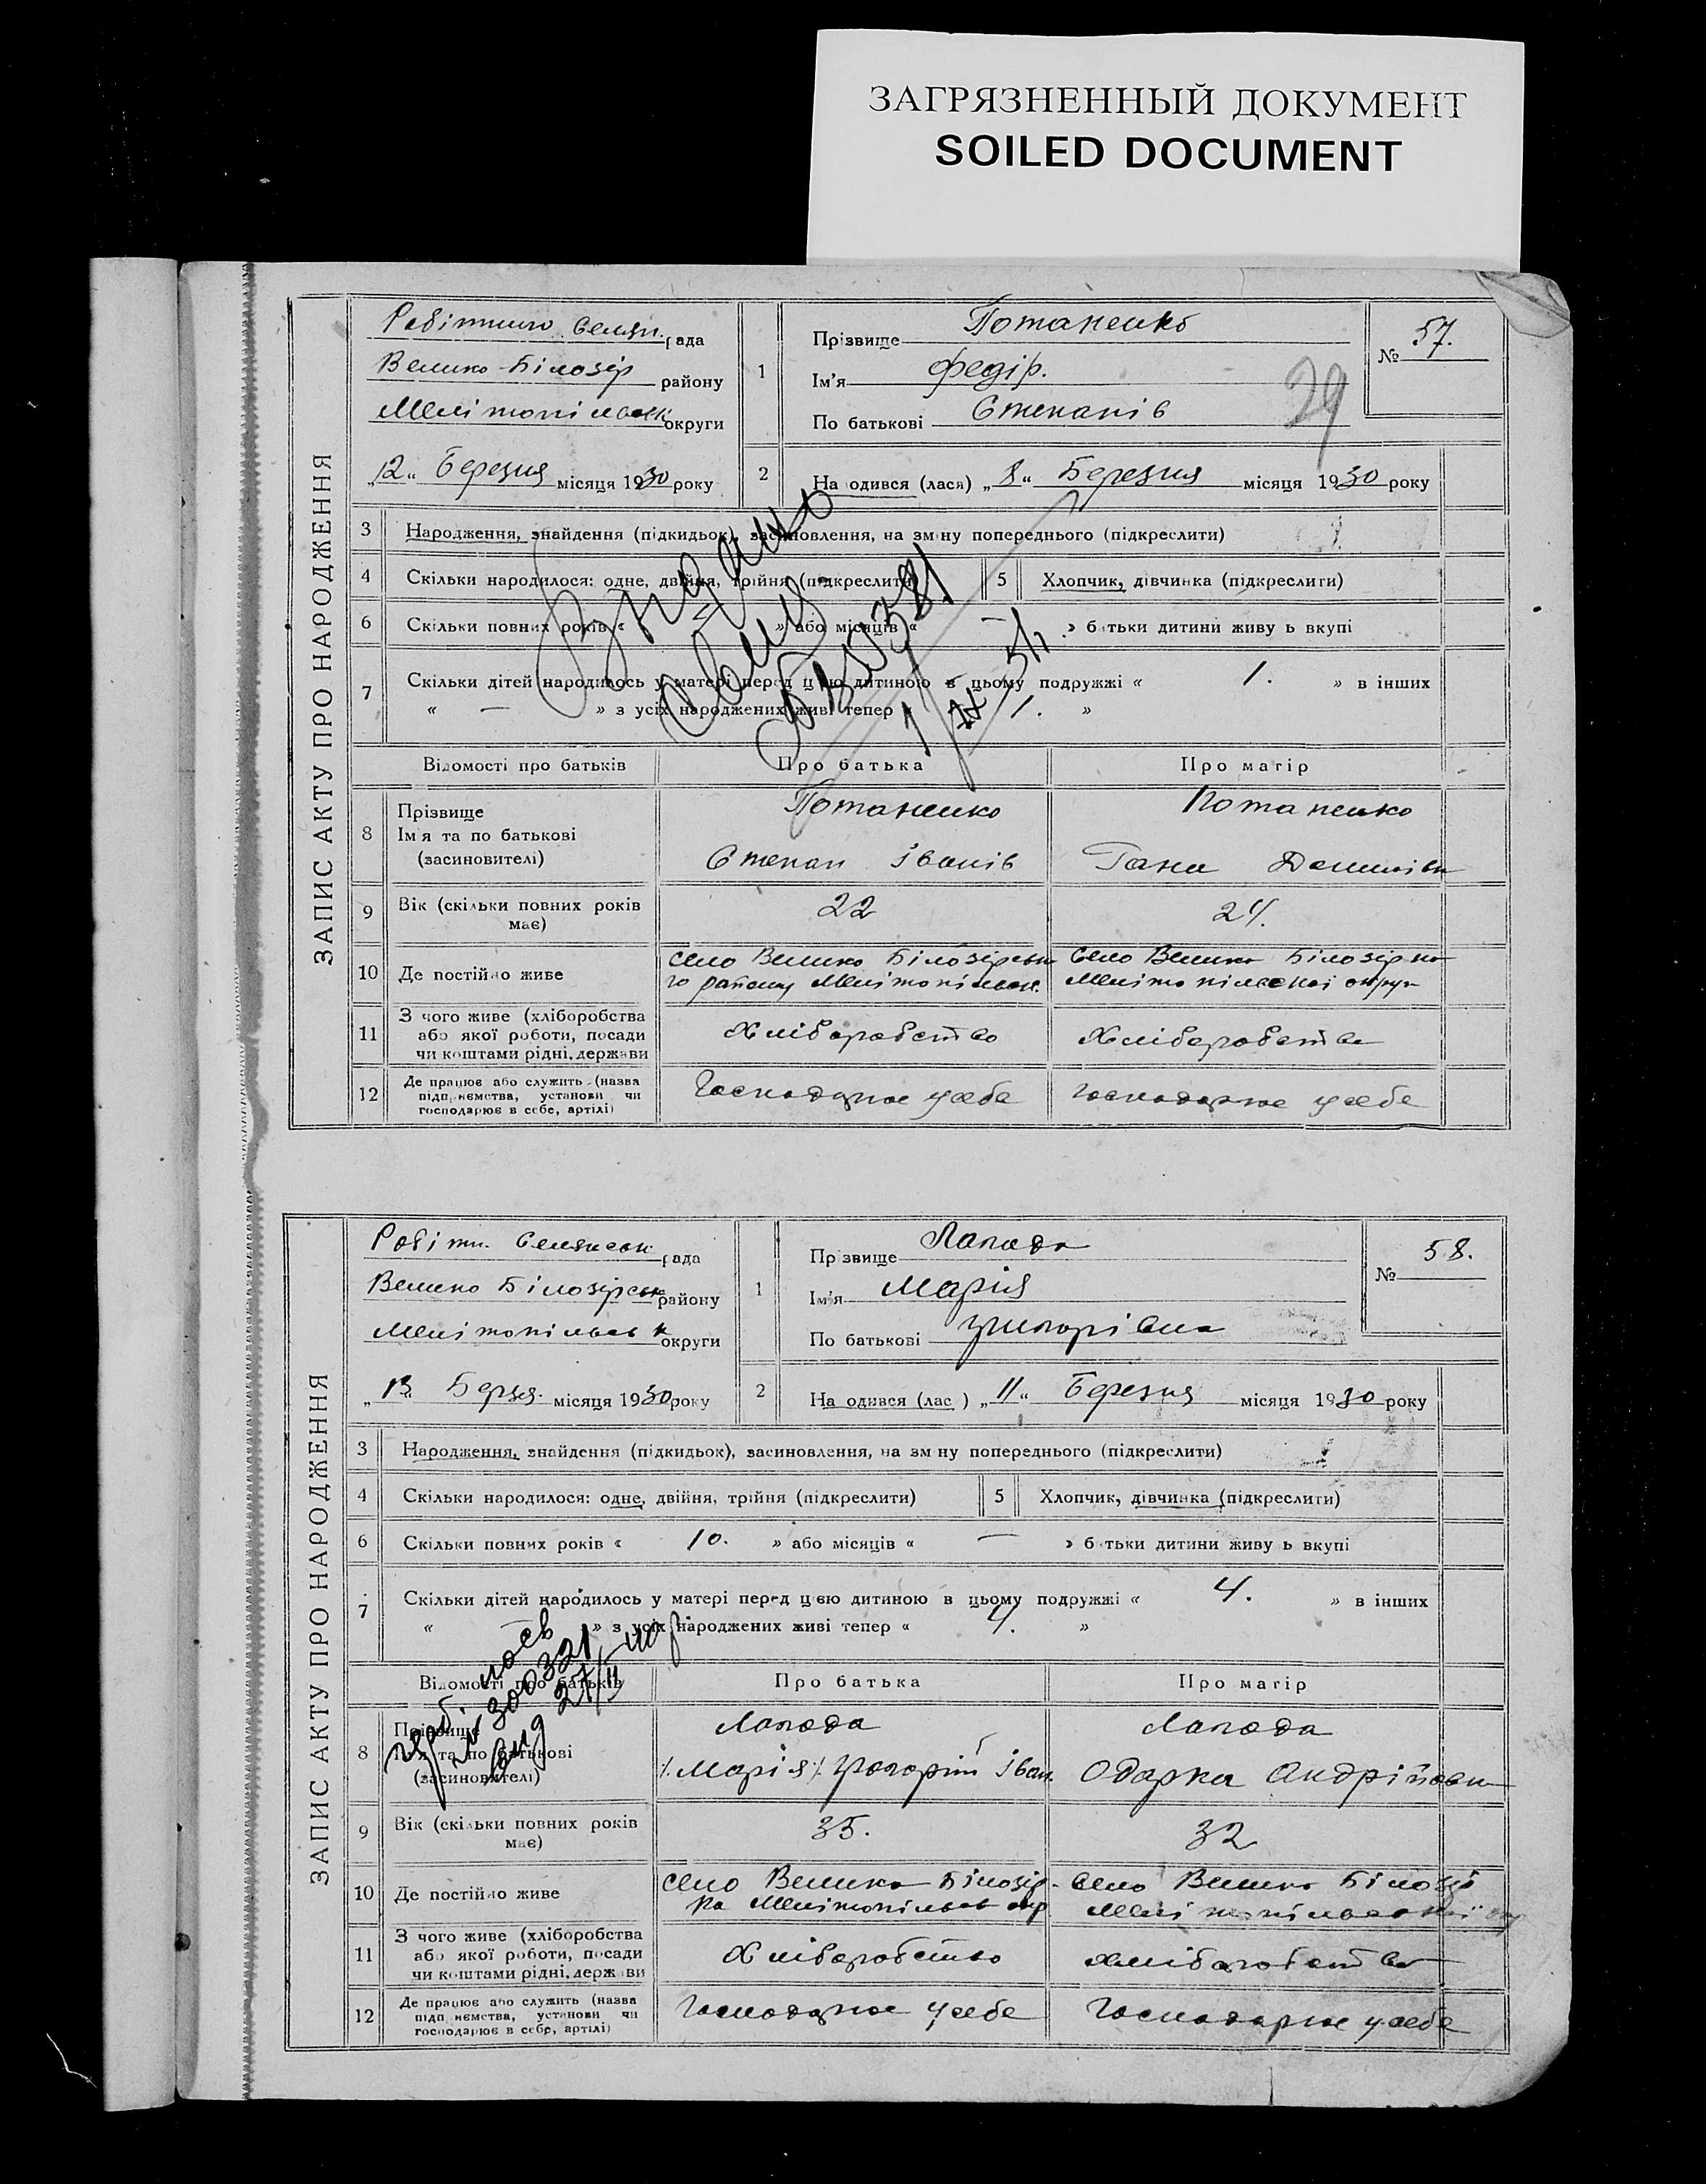 ЗАГРЯЗНЕННЫЙ ДОКУМЕНТ
SOILED DOCUMENT
ЗАПИС АКТУ ПРО НАРОДЖЕННЯ
Робітничо Селян. рада
Велико-Білозір району
Мелітопільськ округи
„12“ Березня місяця 1930 року
1
Прізвище Потапенко
Ім'я Федір.
По батькові Степанів
№ 57.
29
2
На одився (лася) „8“ Березня місяця 1930 року
3 Народження, знайдення (підкидьок), засиновлення, на зм ну попереднього (підкреслити)
4 Скільки народилося: одне, двійня, трійня (підкреслити)
5 Хлопчик, дівчинка (підкреслити)
6 Скільки повних років « » або місяців « — » б тьки дитини живу ь вкупі
7 Скільки дітей народилось у матері перед цією дитиною в цьому подружжі « 1. » в інших
« — » з усіх народжених живі тепер « 1. »
Відомості про батьків
Про батька
Про матір
8 Прізвище
Ім'я та по батькові
(засиновителі)
Потапенко
Степан Іванів
Потапенко
Гана
9 Вік (скільки повних років
має)
22
24.
10 Де постійно живе
село Велико Білозірськ
го району Мелітопільськ.
Село Велика Білозірка
Мелітопільської округ
11 З чого живе (хліборобства
або якої роботи, посади
чи коштами рідні, держави
Хліборобство
Хліборобство
12 Де працює або служить (назва
підп ємства, установи чи
господарює в себе, артілі)
Господарює у себе
господарює у себе
ЗАПИС АКТУ ПРО НАРОДЖЕННЯ
Робітн. Селянськ рада
Велико Білозірськ району
Мелітопільськ округи
„13“ Березн. місяця 1930 року
1
Пр звище Лапада
Ім'я Марія
По батькові Григорівна
№ 58.
2
На одився (лас ) „11“ Березня місяця 1930 року
3 Народження, знайдення (підкидьок), засиновлення, на зм ну попереднього (підкреслити)
4 Скільки народилося: одне, двійня, трійня (підкреслити)
5 Хлопчик, дівчинка (підкреслити)
6 Скільки повних років « 10. » або місяців « — » б тьки дитини живу ь вкупі
7 Скільки дітей народилось у матері перед цією дитиною в цьому подружжі « 4. » в інших
« » з усіх народжених живі тепер « 4. »
Відомості про батьків
Про батька
Про матір
8 Прізвище
Ім'я та по батькові
(засиновителі)
Лапада
/.Марія/. Григорій Іван.
Лапада
Одарка Андріївна
9 Вік (скільки повних років
має)
35.
32
10 Де постійно живе
село Велика Білозір-
ка Мелітопільськ окр
село Велика Білозі
Мелітопільської
11 З чого живе (хліборобства
або якої роботи, посади
чи коштами рідні, держ ви
Хліборобство
Хліборобство
12 Де працює або служить (назва
підп ємства, установи чи
господарює в себе, артілі)
Господарює у себе
Господарює у себе